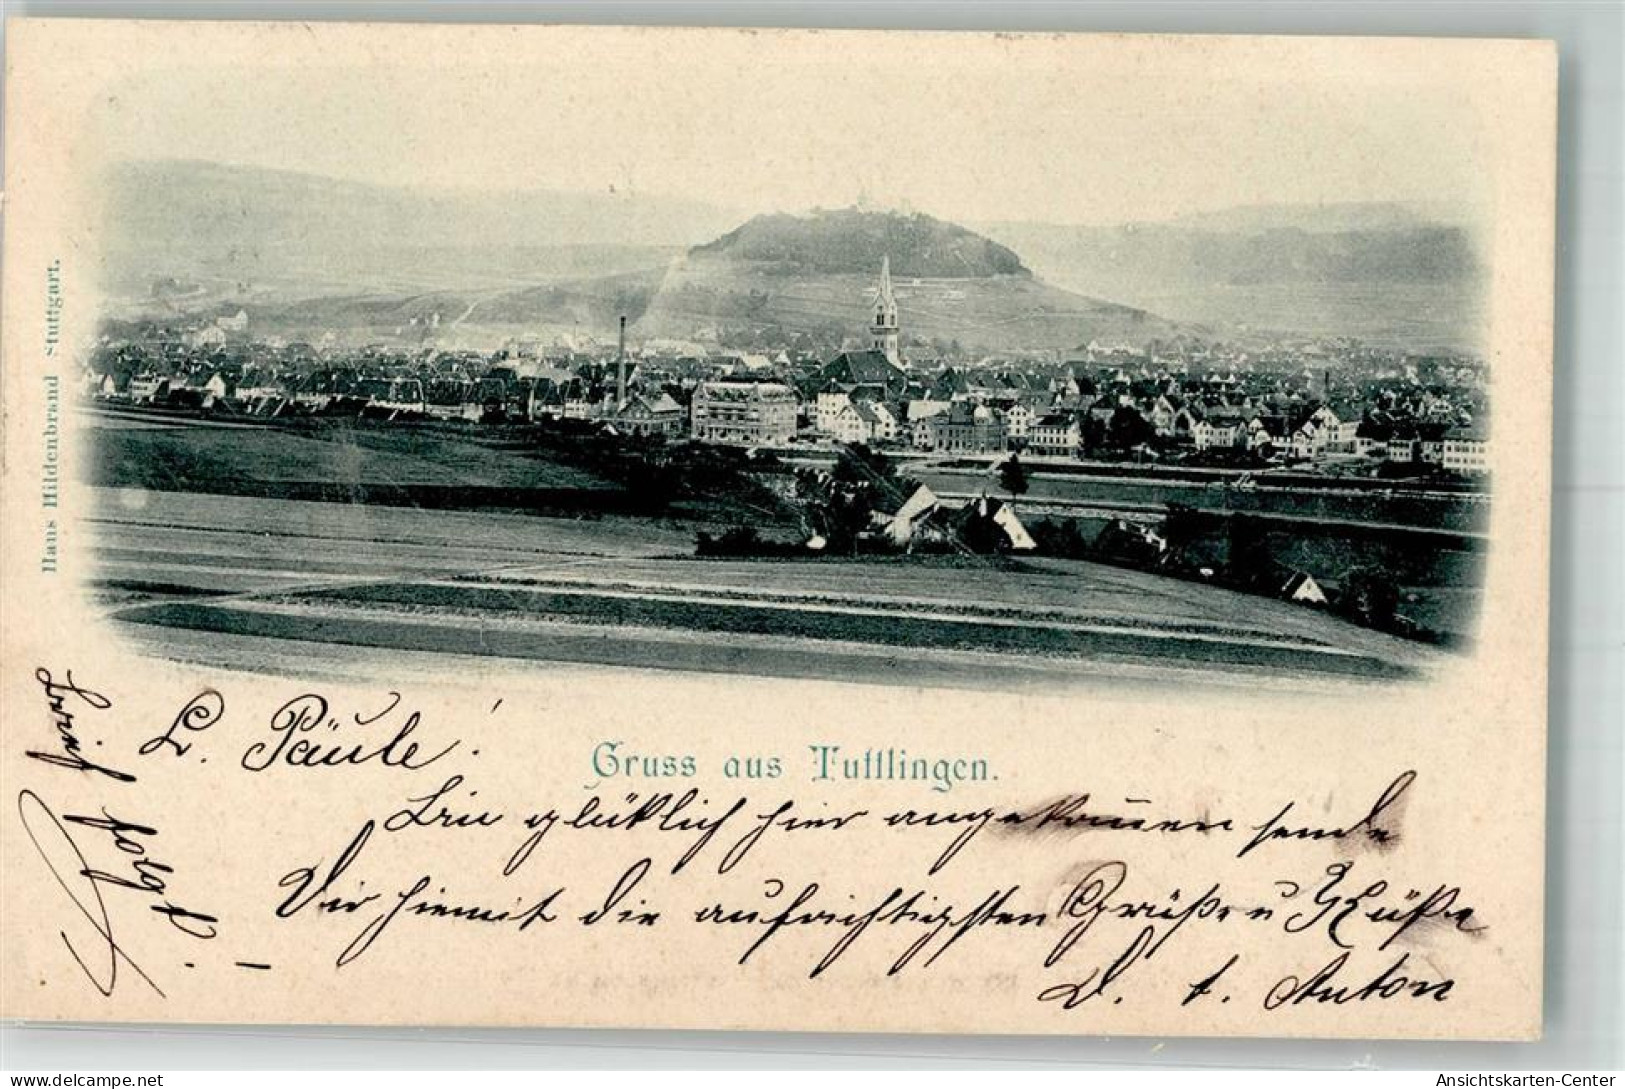 Hans Hildenbrand Stuttgart.
Gruss aus Tuttlingen.
L. Päule!
Bin glücklich hier angekom̅en sende
Dir hiemit die aufrichtigsten Grüße u Küße
D. t. Anton
Brief folgt.
Ansichtskarten-Center
delcampe.net